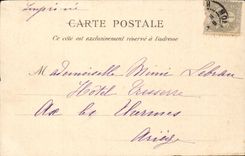 Imprimé
CARTE POSTALE
Ce côté est exclusivement réservé à l'adresse
Mademoiselle Mimi Lebrau
Hôtel
Ax les Thermes
Ariège